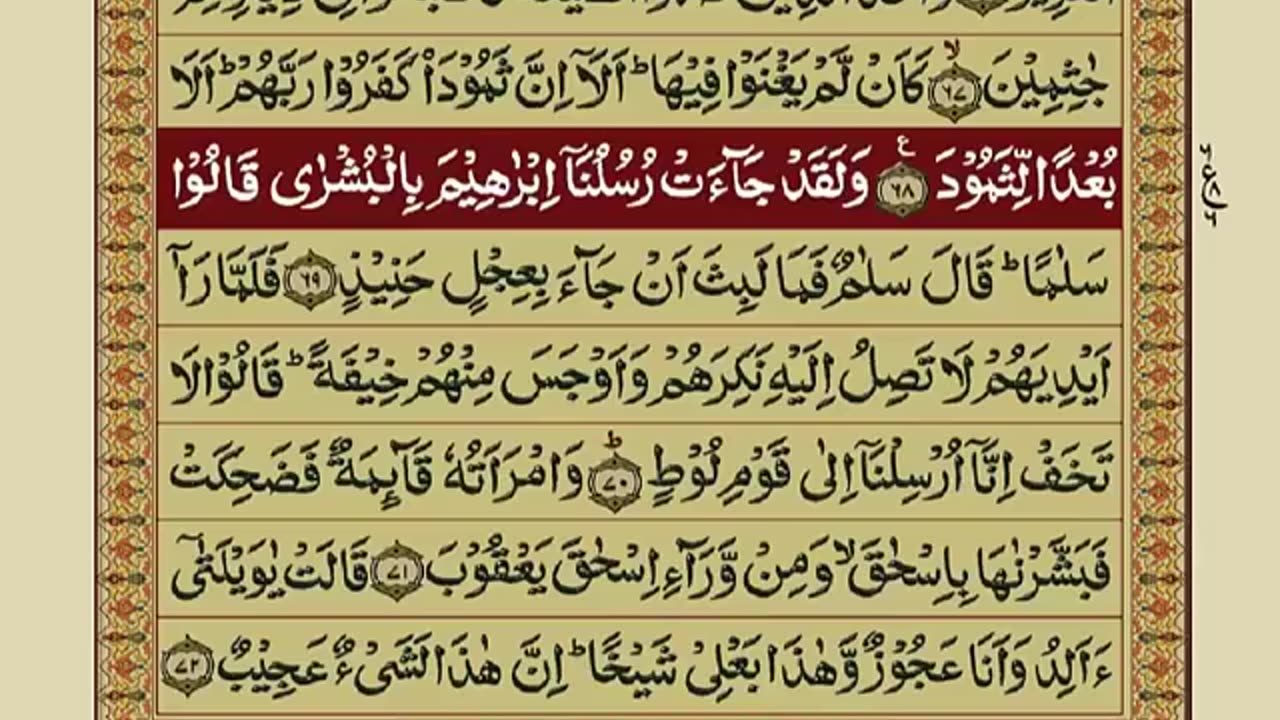 جٰثِمِيْنَ ۙ﴿٦٧﴾ كَاَنْ لَّمْ يَغْنَوْا فِيْهَا ؕ اَلَاۤ اِنَّ ثَمُوْدَا۠ كَفَرُوْا رَبَّهُمْ ؕ اَلَا
بُعْدًا لِّثَمُوْدَ ﴿٦٨﴾ ع وَلَقَدْ جَآءَتْ رُسُلُنَاۤ اِبْرٰهِيْمَ بِالْبُشْرٰى قَالُوْا
سَلٰمًا ؕ قَالَ سَلٰمٌ فَمَا لَبِثَ اَنْ جَآءَ بِعِجْلٍ حَنِيْذٍ ﴿٦٩﴾ فَلَمَّا رَاٰۤ
اَيْدِيَهُمْ لَا تَصِلُ اِلَيْهِ نَكِرَهُمْ وَاَوْجَسَ مِنْهُمْ خِيْفَةً ؕ قَالُوْا لَا
تَخَفْ اِنَّاۤ اُرْسِلْنَاۤ اِلٰى قَوْمِ لُوْطٍ ؕ﴿٧٠﴾ وَامْرَاَتُهٗ قَآئِمَةٌ فَضَحِكَتْ
فَبَشَّرْنٰهَا بِاِسْحٰقَ ۙ وَمِنْ وَّرَآءِ اِسْحٰقَ يَعْقُوْبَ ﴿٧١﴾ قَالَتْ يٰوَيْلَتٰٓى
ءَاَلِدُ وَاَنَا عَجُوْزٌ وَّهٰذَا بَعْلِيْ شَيْخًا ؕ اِنَّ هٰذَا لَشَيْءٌ عَجِيْبٌ ﴿٧٢﴾